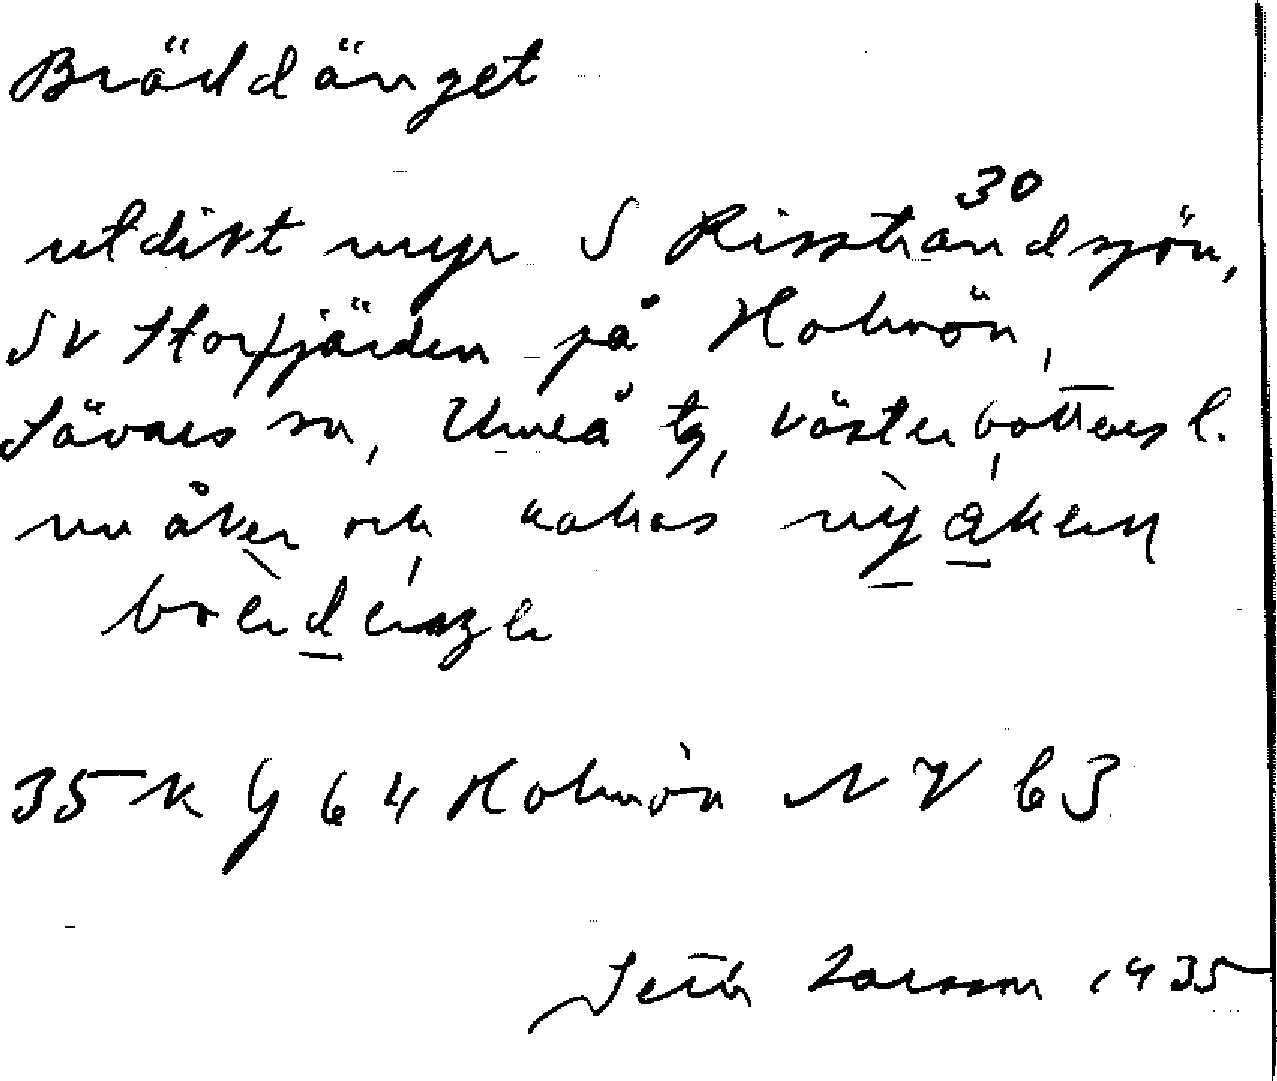 Bräddänget
30
utdikt myr S Risstrandsjön,
SV Storfjärden på Holmön,
Sävars sn, Umeå tg, Västerbottens l.
nu åker och kallas
35 k G 64 Holmön NV b3
Seth Larsson 1935